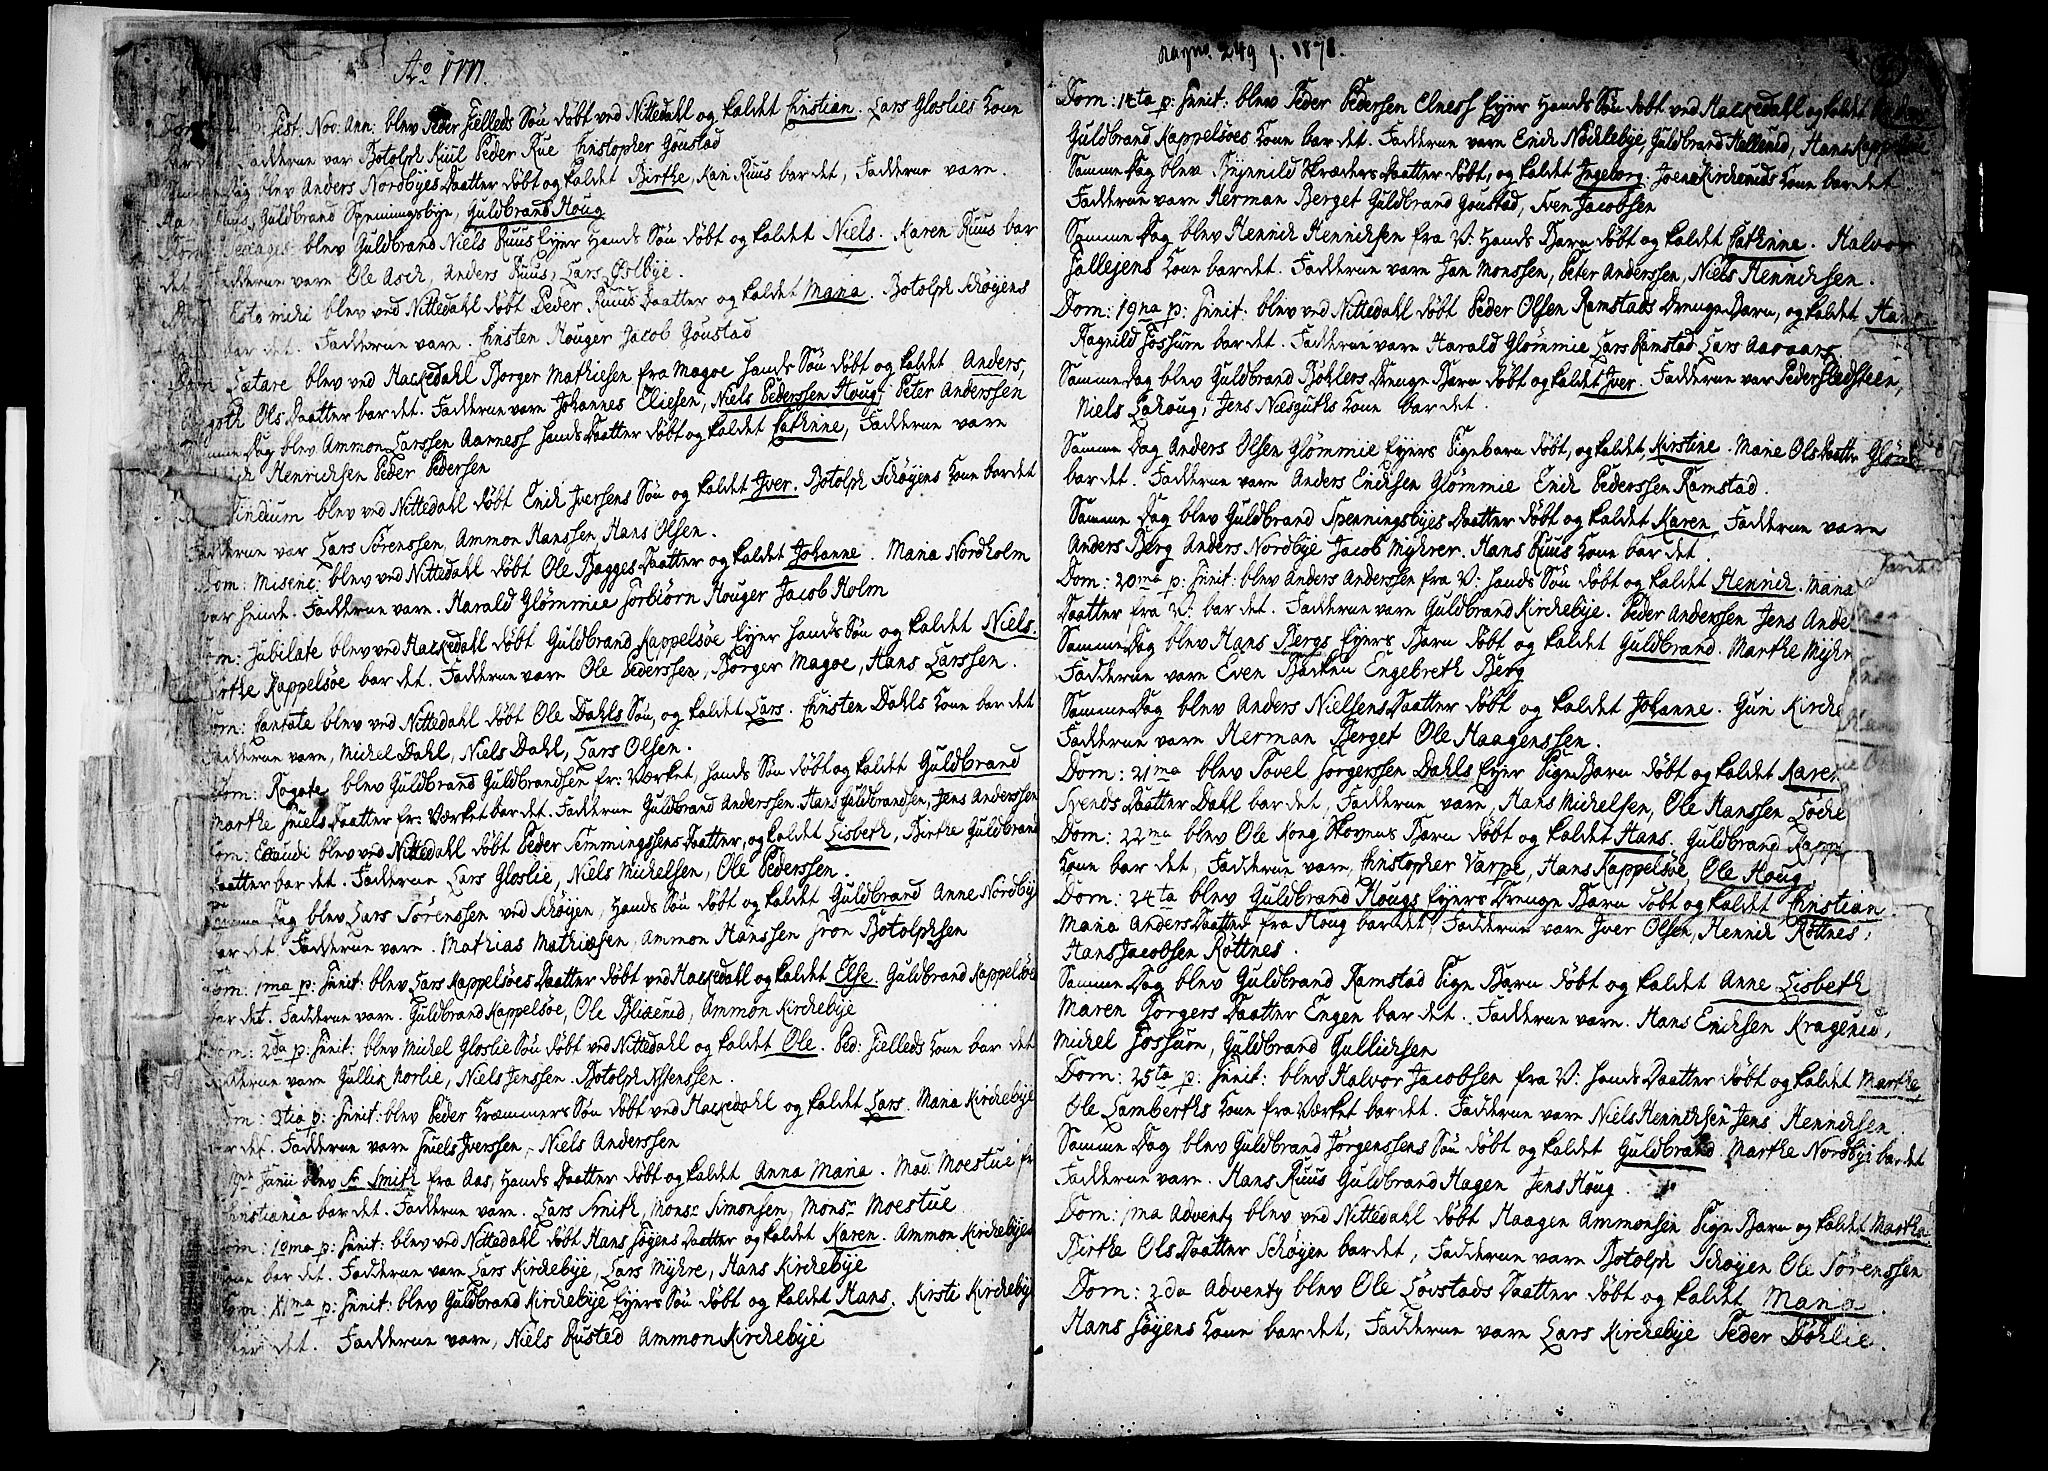 Ao 1777.
Fest: Nov: Ann: blev Peder Fielleds Søn døbt ved Nittedahl og kaldet Christian. Lars Gloslies Kone
Fadderne var Botolph Kiul Peder Rue Christopher Goustad
Dag blev Anders Nordbyes Daatter døbt og kaldet Birthe, Kari Ruus bar det, Fadderne vare.
Guldbrand Spenningsbye, Guldbrand Houg
blev Guldbrand Niels Ruus Eyer Hands Søn døbt og kaldet Niels. Karen Ruus bar
det Fadderne vare Ole Asch, Anders Ruus, Lars Østbye.
Esto mihi blev ved Nittedahl døbt Peder Ruuds Daatter og kaldet Maria. Botolph Schøyens
bar det. Fadderne vare. Christen Houger Jacob Goustad
Dom Lætare blev ved Hackedahl Børger Mathiesen fra Magoe Hands Søn døbt og kaldet Anders,
Ols Daatter bar det. Fadderne vare Johannes Eliesen, Niels Pederssen Houg, Peter Anderssen
Dag blev Ammon Larssen Aarness Hands Daatter døbt og kaldet Cathrine, Fadderne vare
Henrichsen Peder Pedersen
blev ved Nittedahl døbt Erich Iversens Søn og kaldet Iver. Botolph Schøyens Kone bar det
Fadderne var Lars Sørenssen, Ammon Hanssen, Hans Olsen.
Dom: Miseric: blev ved Nittedahl døbt Ole Bagges Daatter og kaldet Johanne. Maria Nordholm
bar hende. Fadderne vare. Harald Glømmie Torbiørn Houger Jacob Holm
Dom: Jubilate blev ved Hackedahl døbt Guldbrand Kappelsøe Eyer Hands Søn og kaldet Niels.
Birthe Kappelsøe bar det. Fadderne vare Ole Pederssen, Børger Magoe, Hans Larssen.
Dom: Cantate blev ved Nittedahl døbt Ole Dahls Søn, og kaldet Lars. Christen Dahls Kone bar det
Fadderne vare, Michel Dahl, Niels Dahl, Lars Olsen.
Dom: Rogate blev Guldbrand Guldbrandsen fr: Værket, Hands Søn døbt og kaldet Guldbrand
Marthe Truels Daatter fr: Værket bar det. Fadderne Guldbrand Anderssen. Hans Guldbrandsen, Jens Anderssen
Dom: Exaudi blev ved Nittedahl døbt Peder Temmingssens Daatter, og kaldet Lisbeth, Birthe Guldbrand
Daatter bar det. Fadderne Lars Gloslie, Niels Michelsen, Ole Pederssen.
Samme Dag blev Lars Sørenssen ved Schøyen, Hands Søn døbt og kaldet Guldbrand Anne Nordbye
bar det. Fadderne vare. Mathias Mathiæsen, Ammon Hanssen Tron Botolphsen
Dom: 1ma p: Trinit: blev Lars Kappelsøes Daatter døbt ved Hackedahl og kaldet Else. Guldbrand Kappelsøe
bar det. Fadderne vare. Guldbrand Kappelsøe, Ole Blixerud, Ammon Kirchebye
Dom: 2da p: Trinit: blev Michel Gloslie Søn døbt ved Nittedahl og kaldet Ole. Ped: Fielleds Kone bar det
Fadderne vare Gullik Norlie, Niels Jenssen. Botolph
Dom: 3tia p: Trinit: blev Peder Cræmmers Søn døbt ved Hackedahl og kaldet Lars. Maria Kirchebye
bar det. Fadderne vare Truels Iverssen, Niels Anderssen
Junii blev Sr Smith fra Aas, Hands Daatter døbt og kaldet Anna Maria. Mad. Moestue fr
Christiania bar det. Fadderne vare. Lars Smith, Monsr Simonsen, Monsr Moestue
Dom: 10ma p: Trinit: blev ved Nittedahl døbt Hans Tøyens Daatter og kaldet Karen. Ammon Kirchebyes
Kone bar det. Fadderne vare Lars Kirchebye, Lars Myhre, Hans Kirchebye
Dom: 11ma p: Trinit: blev Guldbrand Kirchebye Eyers Søn døbt og kaldet Hans. Kirsti Kirchebye
bar det. Fadderne vare, Niels Rusted Ammon Kirchebye
249 1878.
Dom: 14ta p: Trinit: blev Peder Pedersen Elness Eyer Hands Søn døbt ved Hackedahl og kaldet
Guldbrand Kappelsøes Kone bar det. Fadderne vare Erich Nochlebye, Guldbrand Hellerud, Hans Kappelsøe
Samme Dag blev Bryenild Skræders Daatter døbt, og kaldet Ingeborg. Joens Kircheruds Kone bar det
Fadderne vare Herman Berget Guldbrand Goustad, Sven Jacobsen
Samme Dag blev Henrich Henrichsen fra V: Hands Barn døbt og kaldet Cathrine. Halvor
Kone bar det. Fadderne vare Jan Monssen, Peter Anderssen, Niels Henrichsen.
Dom: 19na p: Trinit: blev ved Nittedahl døbt Peder Olsen Ramstads Drenge Barn, og kaldet Hans
Ragnild Fossum bar det. Fadderne vare Harald Glømmie Lars Ramstad Lars
Samme Dag blev Guldbrand Bøhlers Drenge Barn døbt og kaldet Iver. Fadderne var Peder
Niels Lahoug, Jens Næsguths Kone bar det.
Samme Dag Anders Olsen Glømmie Eyers Pigebarn døbt, og kaldet, Kirstine. Marie Ols Daatter Glømmie
bar det. Fadderne vare Anders Erichsen Glømmie Erich Pederssen Ramstad.
Samme Dag blev Guldbrand Spenningsbyes Daatter døbt og kaldet Karen, Fadderne vare
Anders Berg Anders Nordbye Jacob Myhrer. Hans Ruus Kone bar det.
Dom: 20ma p: Trinit: blev Anders Anderssen fra V: Hands Søn døbt og kaldet Henrich. Maria
Daatter fra V: bar det. Fadderne vare Guldbrand Kirchebye. Peder Anderssen Jens Ande
Samme Dag blev Hans Bergs Eyers Barn døbt og kaldet Guldbrand. Marthe Myhr
Fadderne vare Even Backen Engebreth Berg
Samme Dag blev Anders Nielsens Daatter døbt og kaldet Johanne. Guri Kirche
Fadderne vare Herman Berget Ole Haagenssen.
Dom: 21ma blev Povel Torgerssen Dahls Eyer Pige Barn døbt og kaldet Karen
Svends Daatter Dahl bar det, Fadderne vare, Hans Michelsen, Ole Hanssen Løcke
Dom: 22na blev Ole Kong Skovens Barn døbt og kaldet Hans. Guldbrand Kapp
Kone bar det, Fadderne vare, Christopher Varpe, Hans Kappelsøe, Ole Houg,
Dom: 24ta blev Guldbrand Hougs Eyers Drenge Barn døbt og kaldet Christian.
Maria Anders Daatter fra Houg bar det, Fadderne vare Iver Olsen, Henrich Røttnes,
Hans Jacobsen Røttnes.
Samme Dag blev Guldbrand Ramstad Pige Barn døbt og kaldet Anne Lisbeth
Maren Torgers Daatter Engen bar det. Fadderne vare. Hans Erichsen Kragerud,
Michel Fossum, Guldbrand Gullichsen
Dom: 25ta p: Trinit: blev Halvor Jacobsen fra V: Hands Daatter døbt og kaldet Marthe
Ole Lamberths Kone fra Værket bar det. Fadderne vare Niels Henrichsen Jens Henrichsen
Samme Dag blev Guldbrand Jørgenssens Søn døbt og kaldet Guldbrand Marthe Nordbye bar det
Fadderne vare. Hans Ruus Guldbrand Hagen Jens Houg.
Dom: 1ma Adventy blev ved Nittedahl døbt Haagen Ammonsen Pige Barn og kaldet Martha
Birthe Ols Daatter Schøyen bar det, Fadderne vare Botolph Schøyen Ole Sørenssen
Dom: 2da Adventy blev Ole Løvstads Daatter døbt og kaldet Maria.
Hans Tøyens Kone bar det, Fadderne vare Lars Kirchebye Peder Døhlie.